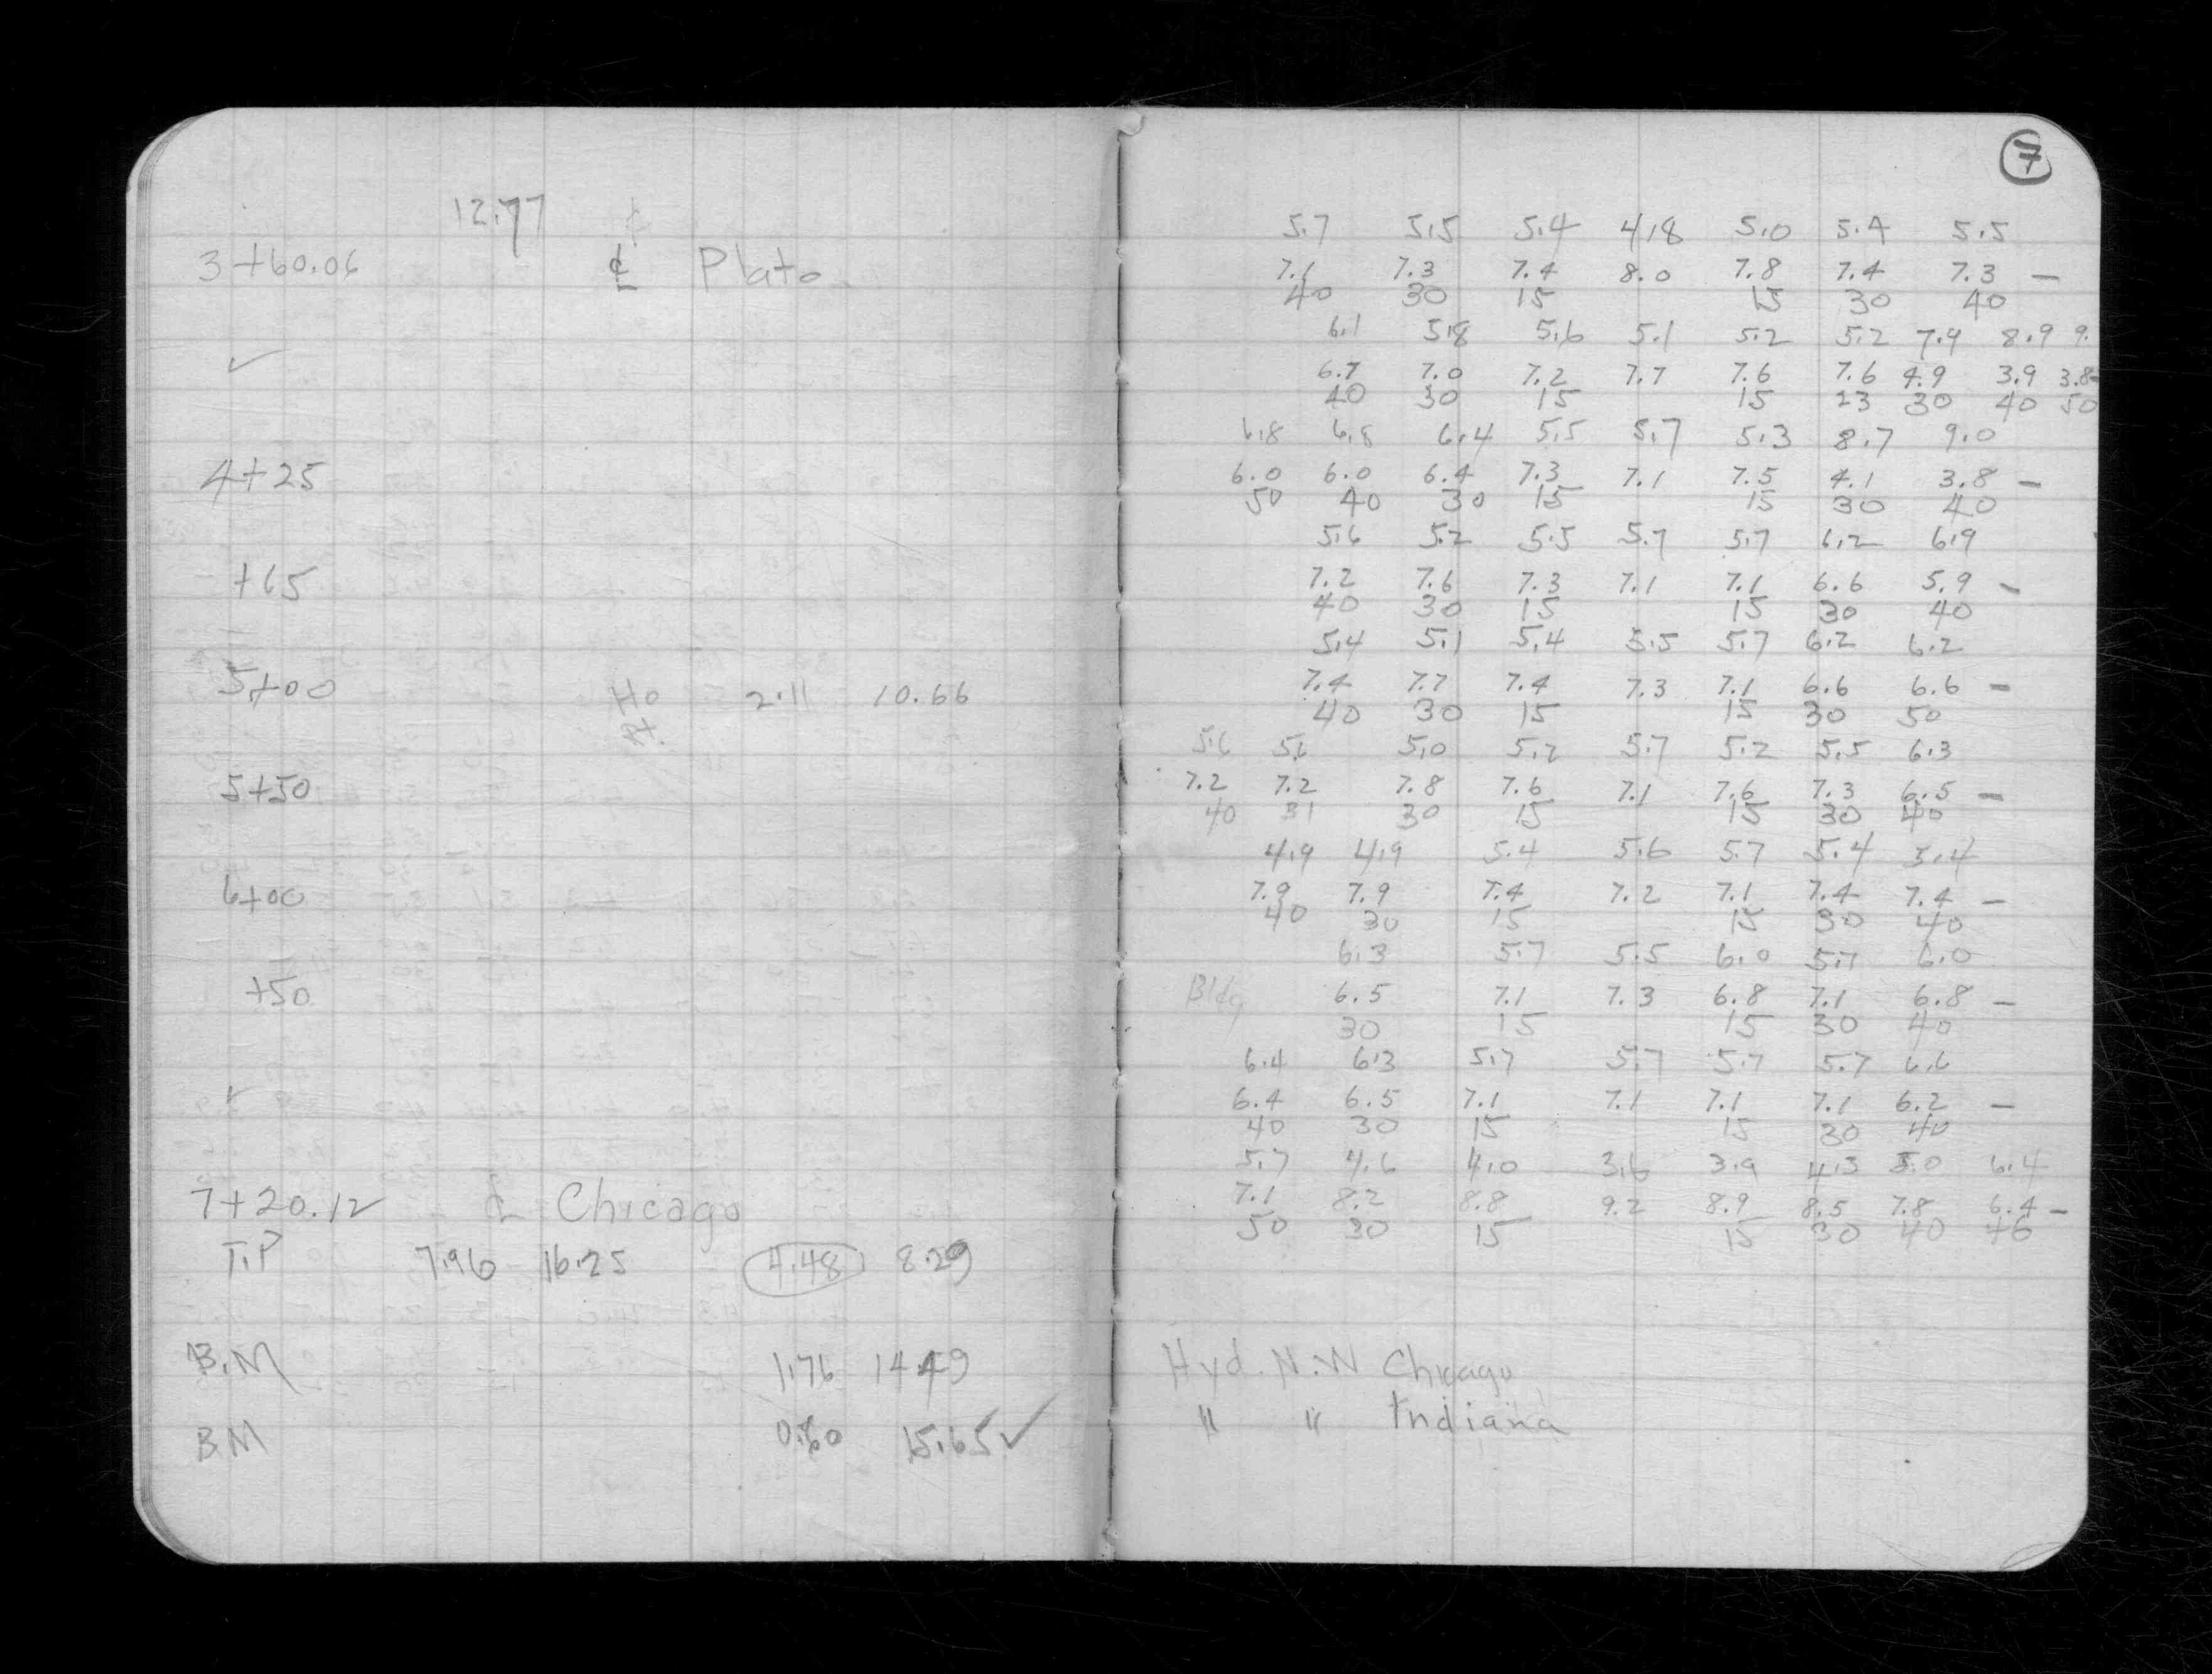 12.77
3+60.06 ℄ Plato
✓
4+25
+65
5+00 Ho 2.11 10.66
Pt.
5+50
6+00
+50
✓
7+20.12 ℄ Chicago
T.P 7.96 16.25 4.48 8.29
B.M 1.76 14.49
B M 0.60 15.65 ✓
7
5.7 5.5 5.4 4.8 5.0 5.4 5.5
7.1 7.3 7.4 8.0 7.8 7.4 7.3 —
40 30 15 15 30 40
6.1 5.8 5.6 5.1 5.2 5.2 7.9 8.9 9.
6.7 7.0 7.2 7.7 7.6 7.6 4.9 3.9 3.8-
40 30 15 15 23 30 40 50
6.8 6.8 6.4 5.5 5.7 5.3 8.7 9.0
6.0 6.0 6.4 7.3 7.1 7.5 4.1 3.8 —
50 40 30 15 15 30 40
5.6 5.2 5.5 5.7 5.7 6.2 6.9
7.2 7.6 7.3 7.1 7.1 6.6 5.9 —
40 30 15 15 30 40
5.4 5.1 5.4 5.5 5.7 6.2 6.2
7.4 7.7 7.4 7.3 7.1 6.6 6.6 —
40 30 15 15 30 50
5.6 5.6 5.0 5.2 5.7 5.2 5.5 6.3
7.2 7.2 7.8 7.6 7.1 7.6 7.3 6.5 —
40 31 30 15 15 30 40
4.9 4.9 5.4 5.6 5.7 5.4 5.4
7.9 7.9 7.4 7.2 7.1 7.4 7.4 —
40 30 15 15 30 40
6.3 5.7 5.5 6.0 5.7 6.0
Bldg 6.5 7.1 7.3 6.8 7.1 6.8 —
30 15 15 30 40
6.4 6.3 5.7 5.7 5.7 5.7 6.6
6.4 6.5 7.1 7.1 7.1 7.1 6.2 —
40 30 15 15 30 40
5.7 4.6 4.0 3.6 3.9 4.3 5.0 6.4
7.1 8.2 8.8 9.2 8.9 8.5 7.8 6.4 —
50 30 15 15 30 40 46
Hyd. N.W Chicago
" " Indiana